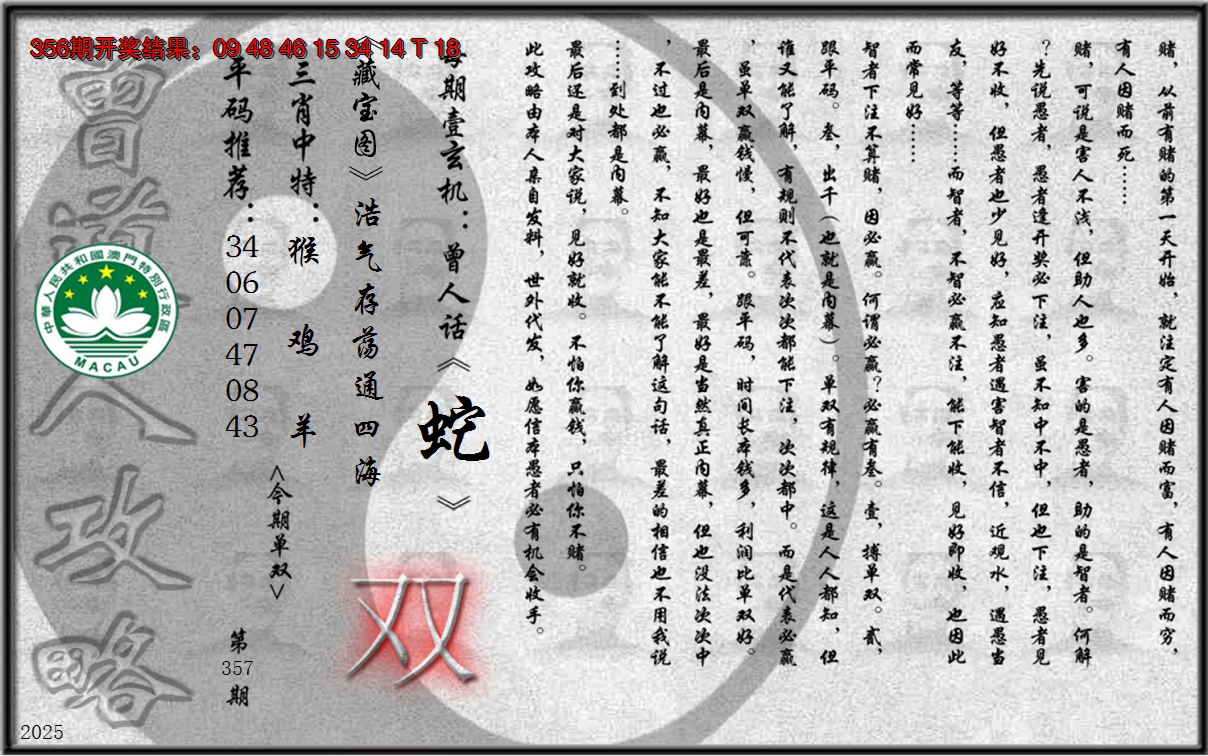 356期开奖结果：09 48 46 15 34 14 T 18
赌，从前有赌的第一天开始，就注定有人因赌而富，有人因赌而穷，
有人因赌而死……
赌，可说是害人不浅，但助人也多。害的是愚者，助的是智者。何解
？先说愚者，愚者逢开奖必下注，虽不知中不中，但也下注，愚者见
好不收，但愚者也少见好，应知愚者遇害智者不信，近观水，遇愚当
友，等等……而智者，不智必赢不注，能下能收，见好即收，也因此
而常见好……
智者下注不算赌，因必赢。何谓必赢？必赢有叁。壹，搏单双。贰，
跟平码。叁，出千（也就是内幕）。单双有规律，这是人人都知，但
谁又能了解，有规则不代表次次都能下注，次次都中。而是代表必赢
，虽单双赢钱慢，但可靠。跟平码，时间长本钱多，利润比单双好。
最后是内幕，最好也是最差，最好是当然真正内幕，但也没法次次中
，不过也必赢，不知大家能不能了解这句话，最差的相信也不用我说
……到处都是内幕。
最后还是对大家说，见好就收。不怕你赢钱，只怕你不赌。
此攻略由本人亲自发料，世外代发，如愿信本愚者必有机会收手。
每期壹玄机：曾人话《蛇》
《藏宝图》浩气存荡通四海
双
三肖中特：猴 鸡 羊
<今期单双>
平码推荐：34 06 07 47 08 43
第357期
曾道人攻略
中華人民共和國澳門特別行政區
MACAU
2025